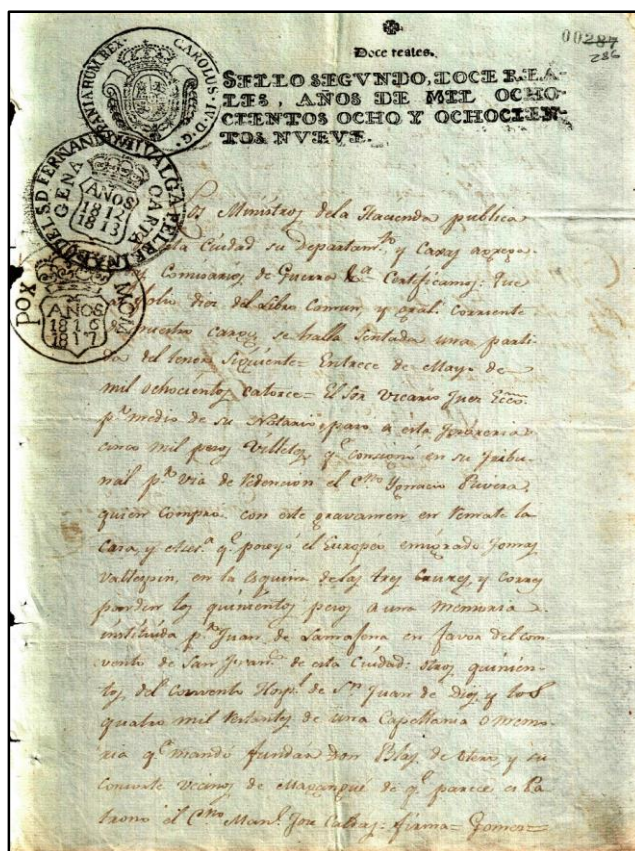 00287
286
Doce reales.
SELLO SEGVNDO, DOCE REA-
LES, AÑOS DE MIL OCHO-
CIENTOS OCHO Y OCHOCIEN-
TOS NVEVE.
CAROLUS·IV·D·G·
HISPANIARUM REX·
CARTAGENA
AÑOS
1812
1813
POX MON
AÑOS
1816
1817
Los Ministros de la Hacienda publica
esta Ciudad su Departamto. y Caxas agrega
Comisarios de Guerra &a. Certificamos: Que
folio diez del Libro Comun, y gral. corriente
nuestro cargo se halla Sentada una parti-
da del tenor Siguiente= En trece de Mayo de
mil ochocientos catorce= El Sor. Vicario Juez Ecco.
pr. medio de su Notario pasó a esta Tesoreria
cinco mil pesos Villetes qe. consignó en su Tribu-
nal pr. via de redencion el Cno. Ygnacio Rivera,
quien compró con este gravamen en Remate la
Casa, y qe. poseyó el Européo emigrado Tomas
Vallespin, en la esquina de las tres Cruces, y corres
ponden los quinientos pesos a una Memoria
instituida pr. Juan de en favor del com-
vento de San Fran.co de esta Ciudad: otros quinien-
tos, del Convento Hospl. de Sn. Juan de Dios, y los
quatro mil restantes de una Capellania o memo-
ria qe. mandó fundar Don Blas de Otero, y su
consorte vecinos de Magangué de qe. parece es Pa
trono el Cno. Manl. Jose Caldas= firma= Gomez=